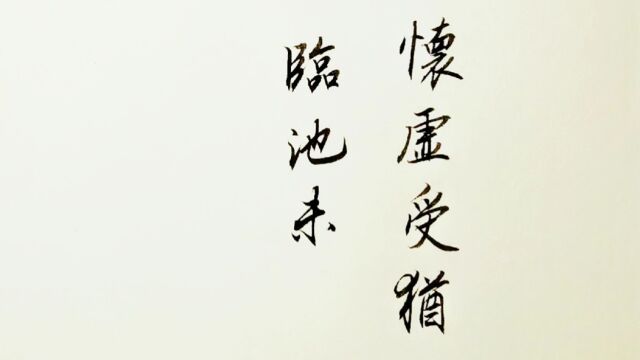 懷虛受猶
臨池未